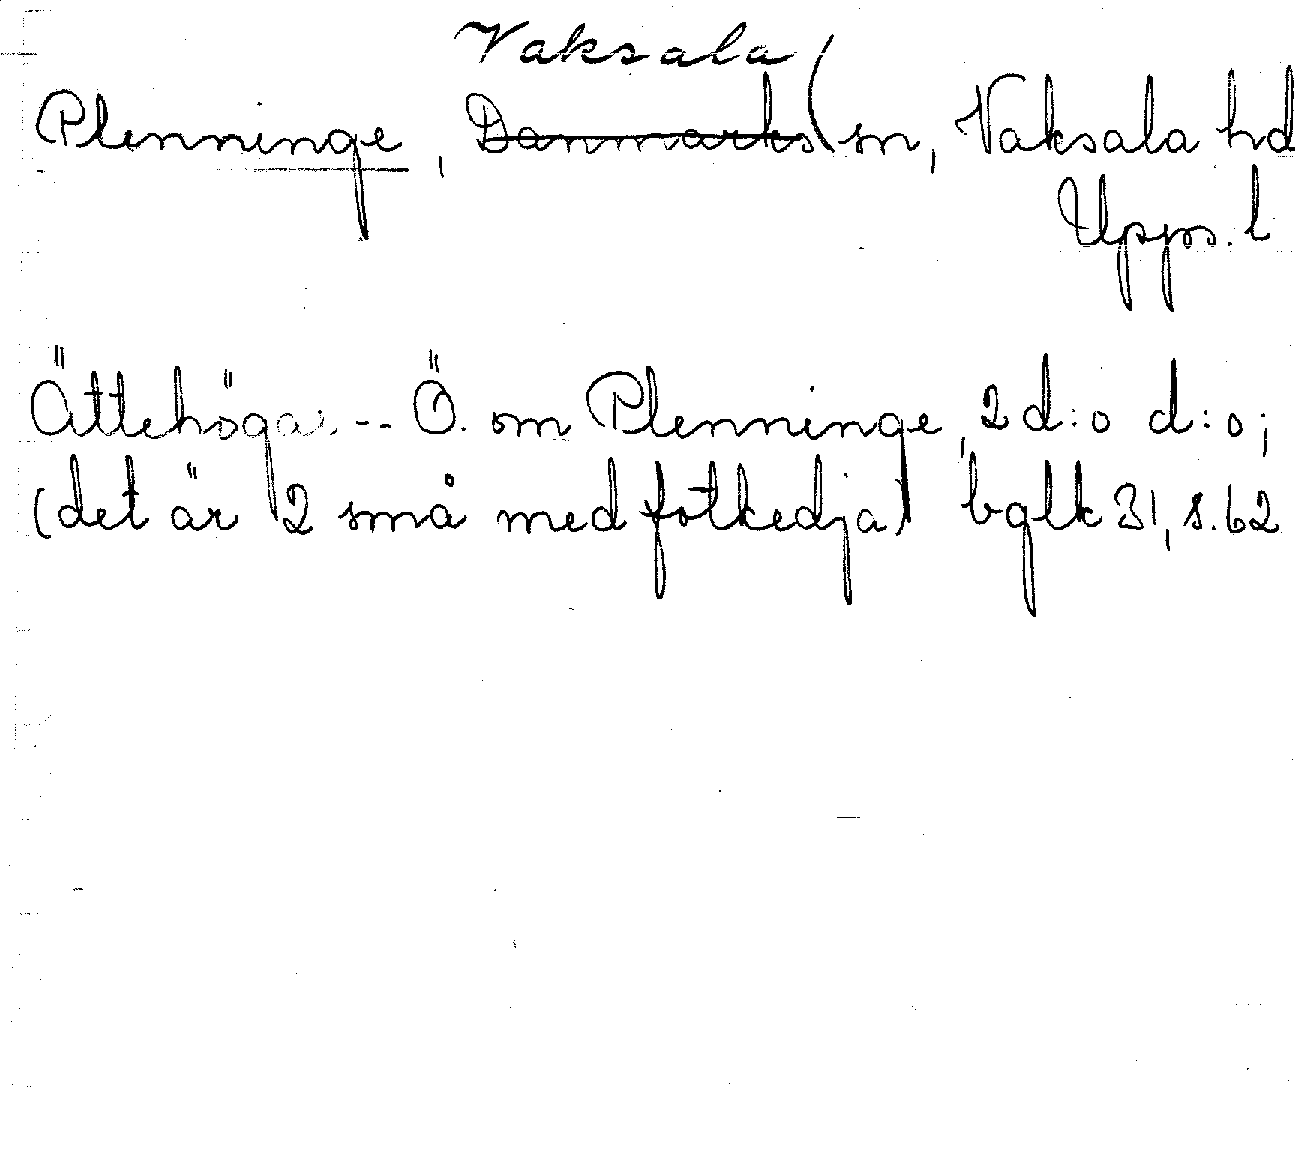 Vaksala
Plenninge, Danmarks sn, Vaksala hd
Upps. l
Ättehögar -- Ö. om Plenninge, 2 d:o d:o;
(det är 2 små med fotkedja) bglk 31, s. 62